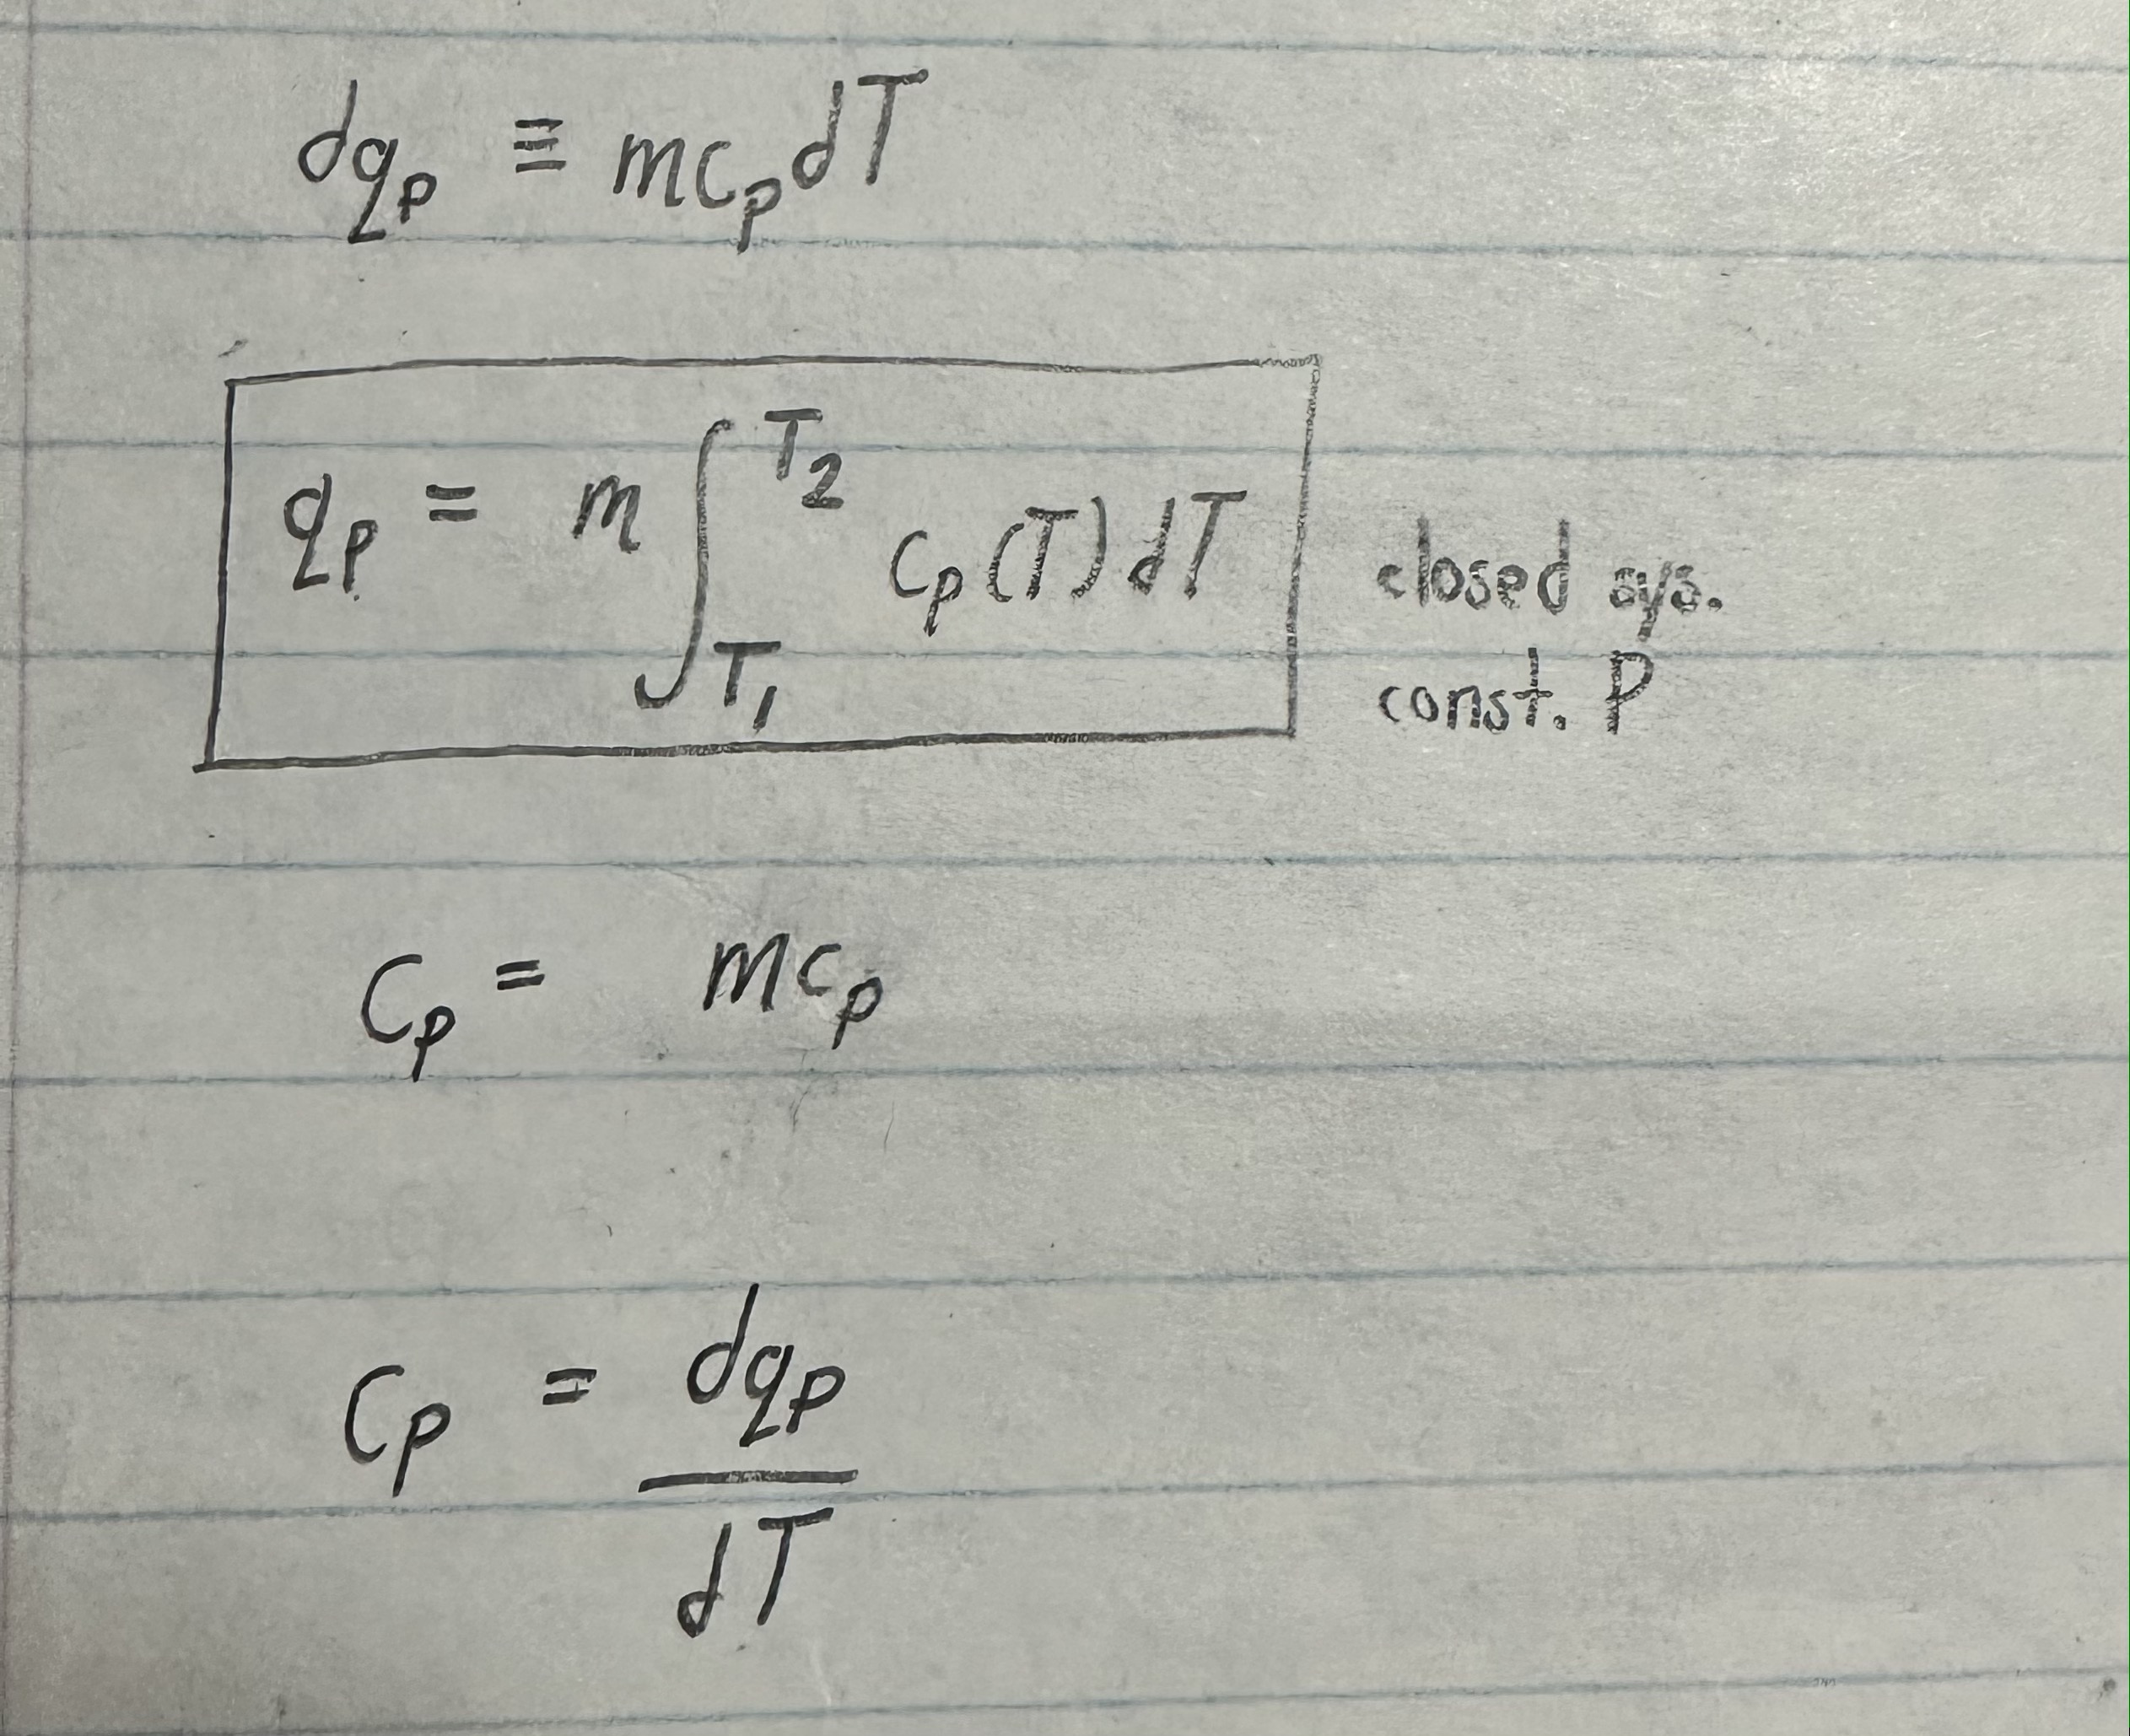 dq_p ≡ mc_p dT
q_p = m ∫_{T_1}^{T_2} c_p(T) dT
closed sys.
const. P
C_p = mc_p
C_p = dq_p / dT